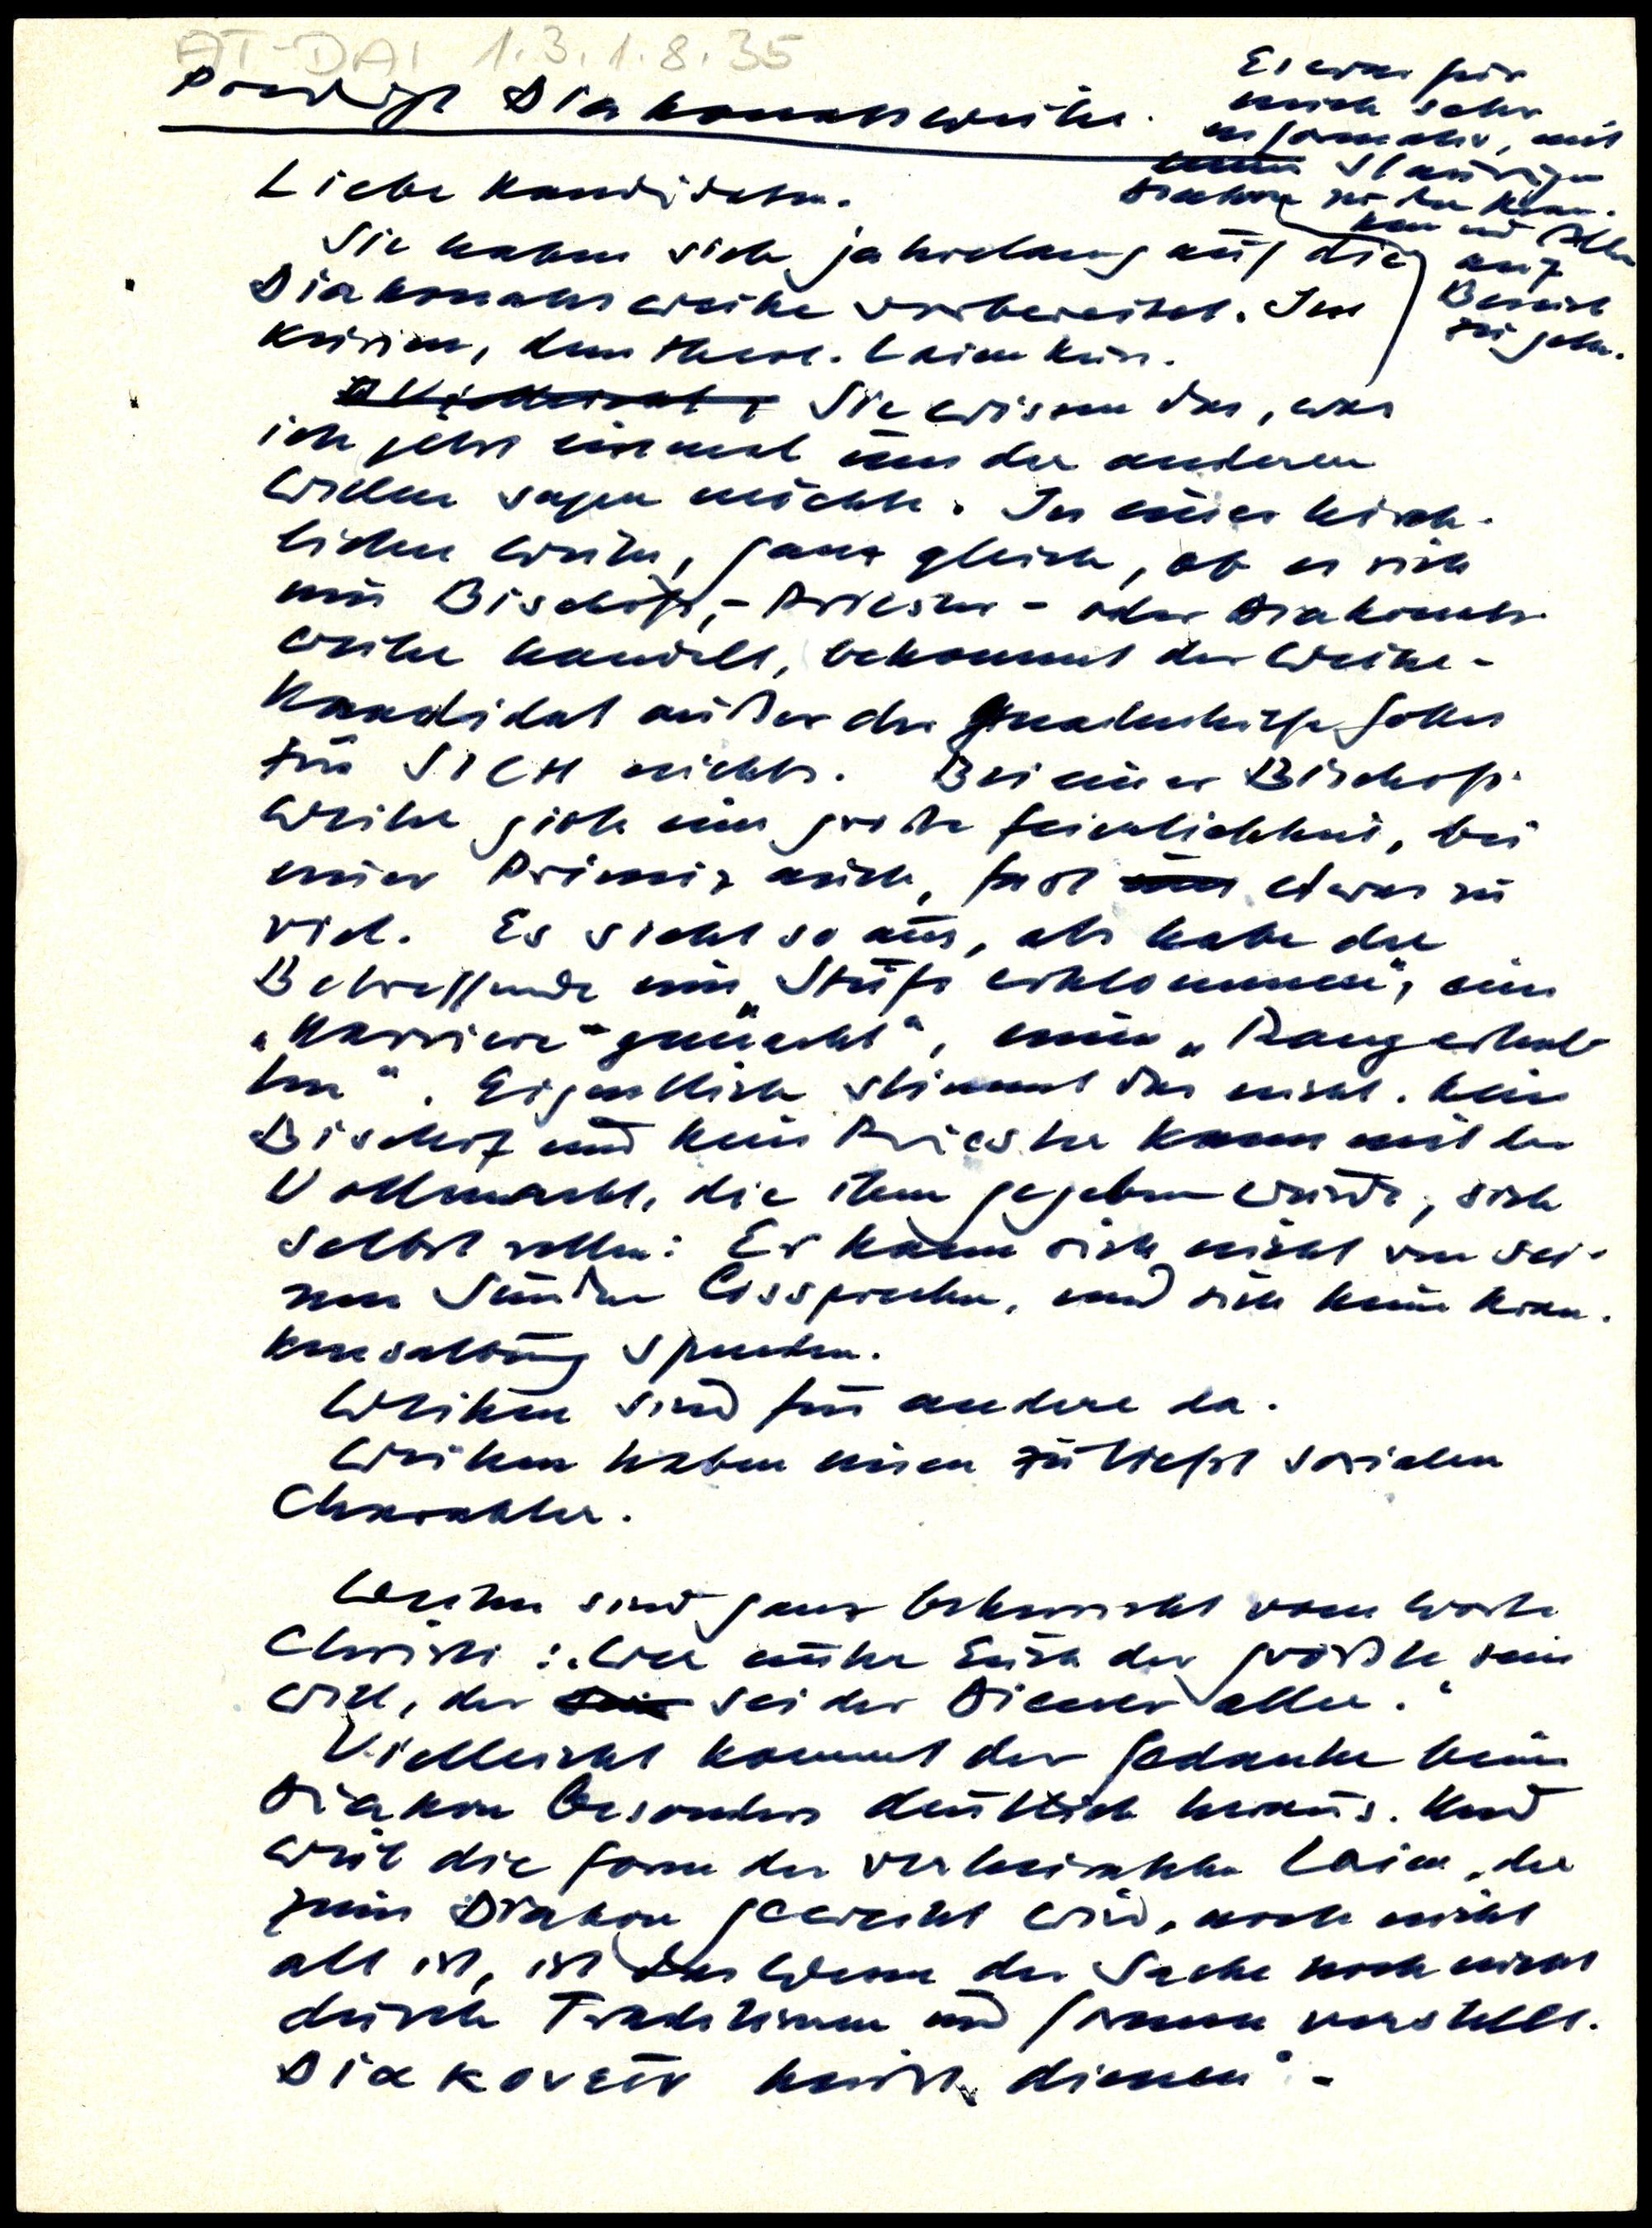 AT-DAI 1.3.1.8.35
Predigt Diakonatsweihe.
Es war für
mich sehr
informativ, mit
Ständigen
Diakon zu den Kran-
ken und Alten
auf
Besuch
zu gehn.
Liebe Kandidaten.
Sie haben sich jahrelang auf die
Diakonatsweihe vorbereitet. In
Kursen, dem theol. Laienkurs.
Vielleicht, Sie wissen das, was
ich jetzt einmal um der anderen
willen sagen möchte. In einer kirch-
lichen Weihe, ganz gleich, ob es sich
um Bischofs,- Priester- oder Diakonats-
weihe handelt, bekommt der Weihe-
Kandidat außer der Gnadenhilfe Gottes
für SICH nichts. Bei einer Bischofs-
weihe gibts eine große Feierlichkeit, bei
einer Primiz auch, fast etwas zu
viel. Es sieht so aus, als habe der
Betreffende eine „Stufe erklommen", eine
„Karriere gemacht", einen „Rang erhal-
ten". Eigentlich stimmt das nicht. Kein
Bischof und kein Priester kann mit der
Vollmacht, die ihm gegeben wurde, sich
selbst retten: Er kann sich nicht von sei-
nen Sünden lossprechen, und sich keine Kran-
kensalbung spenden.
Weihen sind für andere da.
Weihen haben einen zutiefst sozialen
Charakter.
Weihen sind ganz beherrscht vom Worte
Christi: „Wer unter Euch der größte sein
will, der sei der Diener aller."
Vielleicht kommt der Gedanke beim
Diakon besonders deutlich heraus. Und
weil die Form des verheirateten Laien, der
zum Diakon geweiht wird, noch nicht
alt ist, ist das Wesen der Sache noch nicht
durch Traditionen und Formen verstellt.
Διακονεῖν heißt „dienen" -